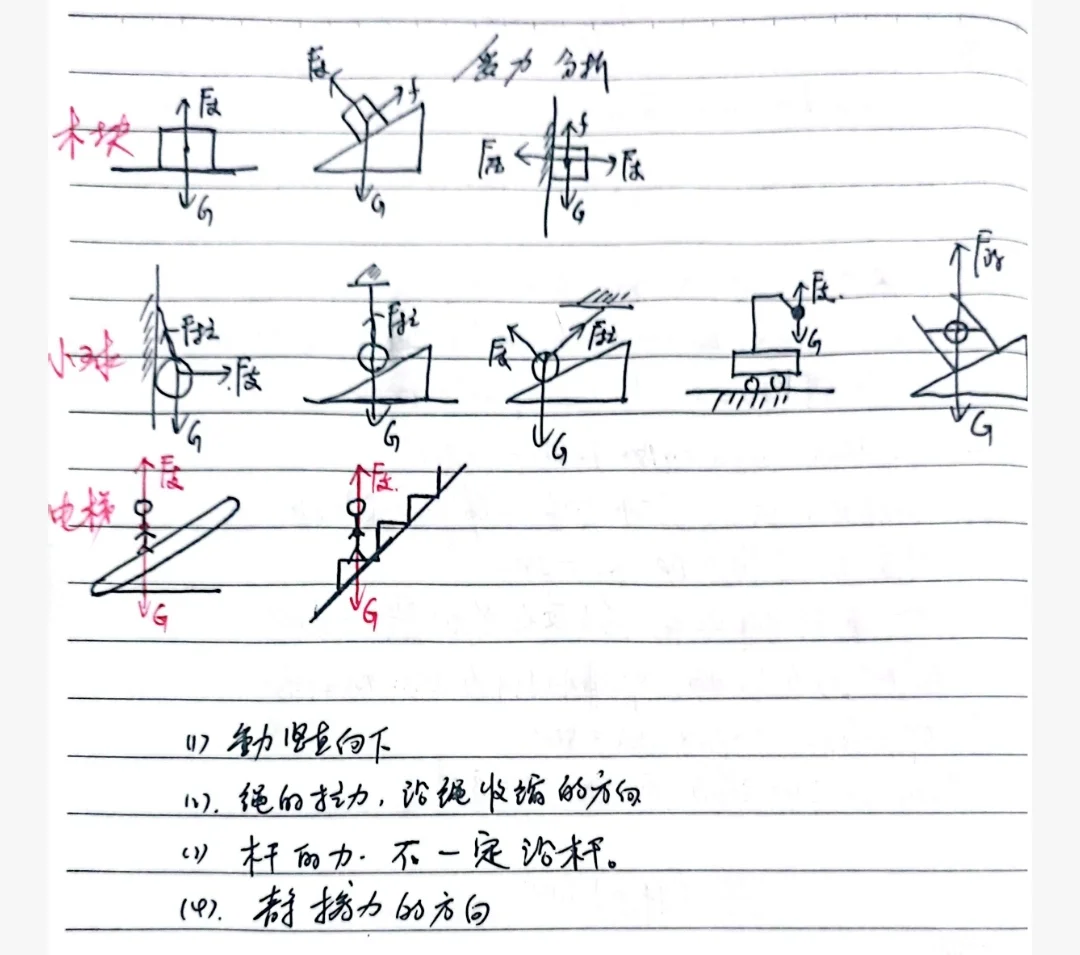 受力分析
木块
F支
G
F支
f
G
F压
f
F支
G
小球
F拉
F支
G
F拉
G
F支
F拉
G
F支
G
G
电梯
F支
G
F支
G
(1) 重力竖直向下
(2). 绳的拉力,沿绳收缩的方向
(3) 杆的力. 不一定沿杆。
(4). 静摩擦力的方向